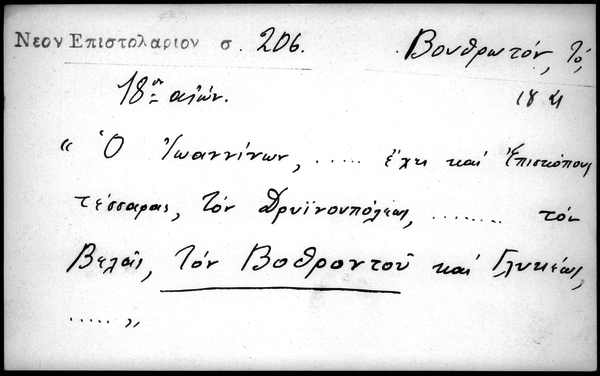 Νεον Επιστολαριον σ. 206. Βουθρωτόν, τό,
18ος αιών. 18 αι
" Ὁ Ἰωαννίνων, ..... ἔχει καί Ἐπισκόπους
τέσσαρας, τόν Δρυϊνουπόλεως, ........ τόν
Βελᾶς, τόν Βοθροντοῦ καί Γλυκέως,
..... "